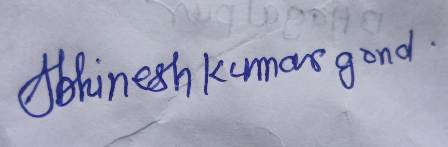 Abhinesh kumar gond.